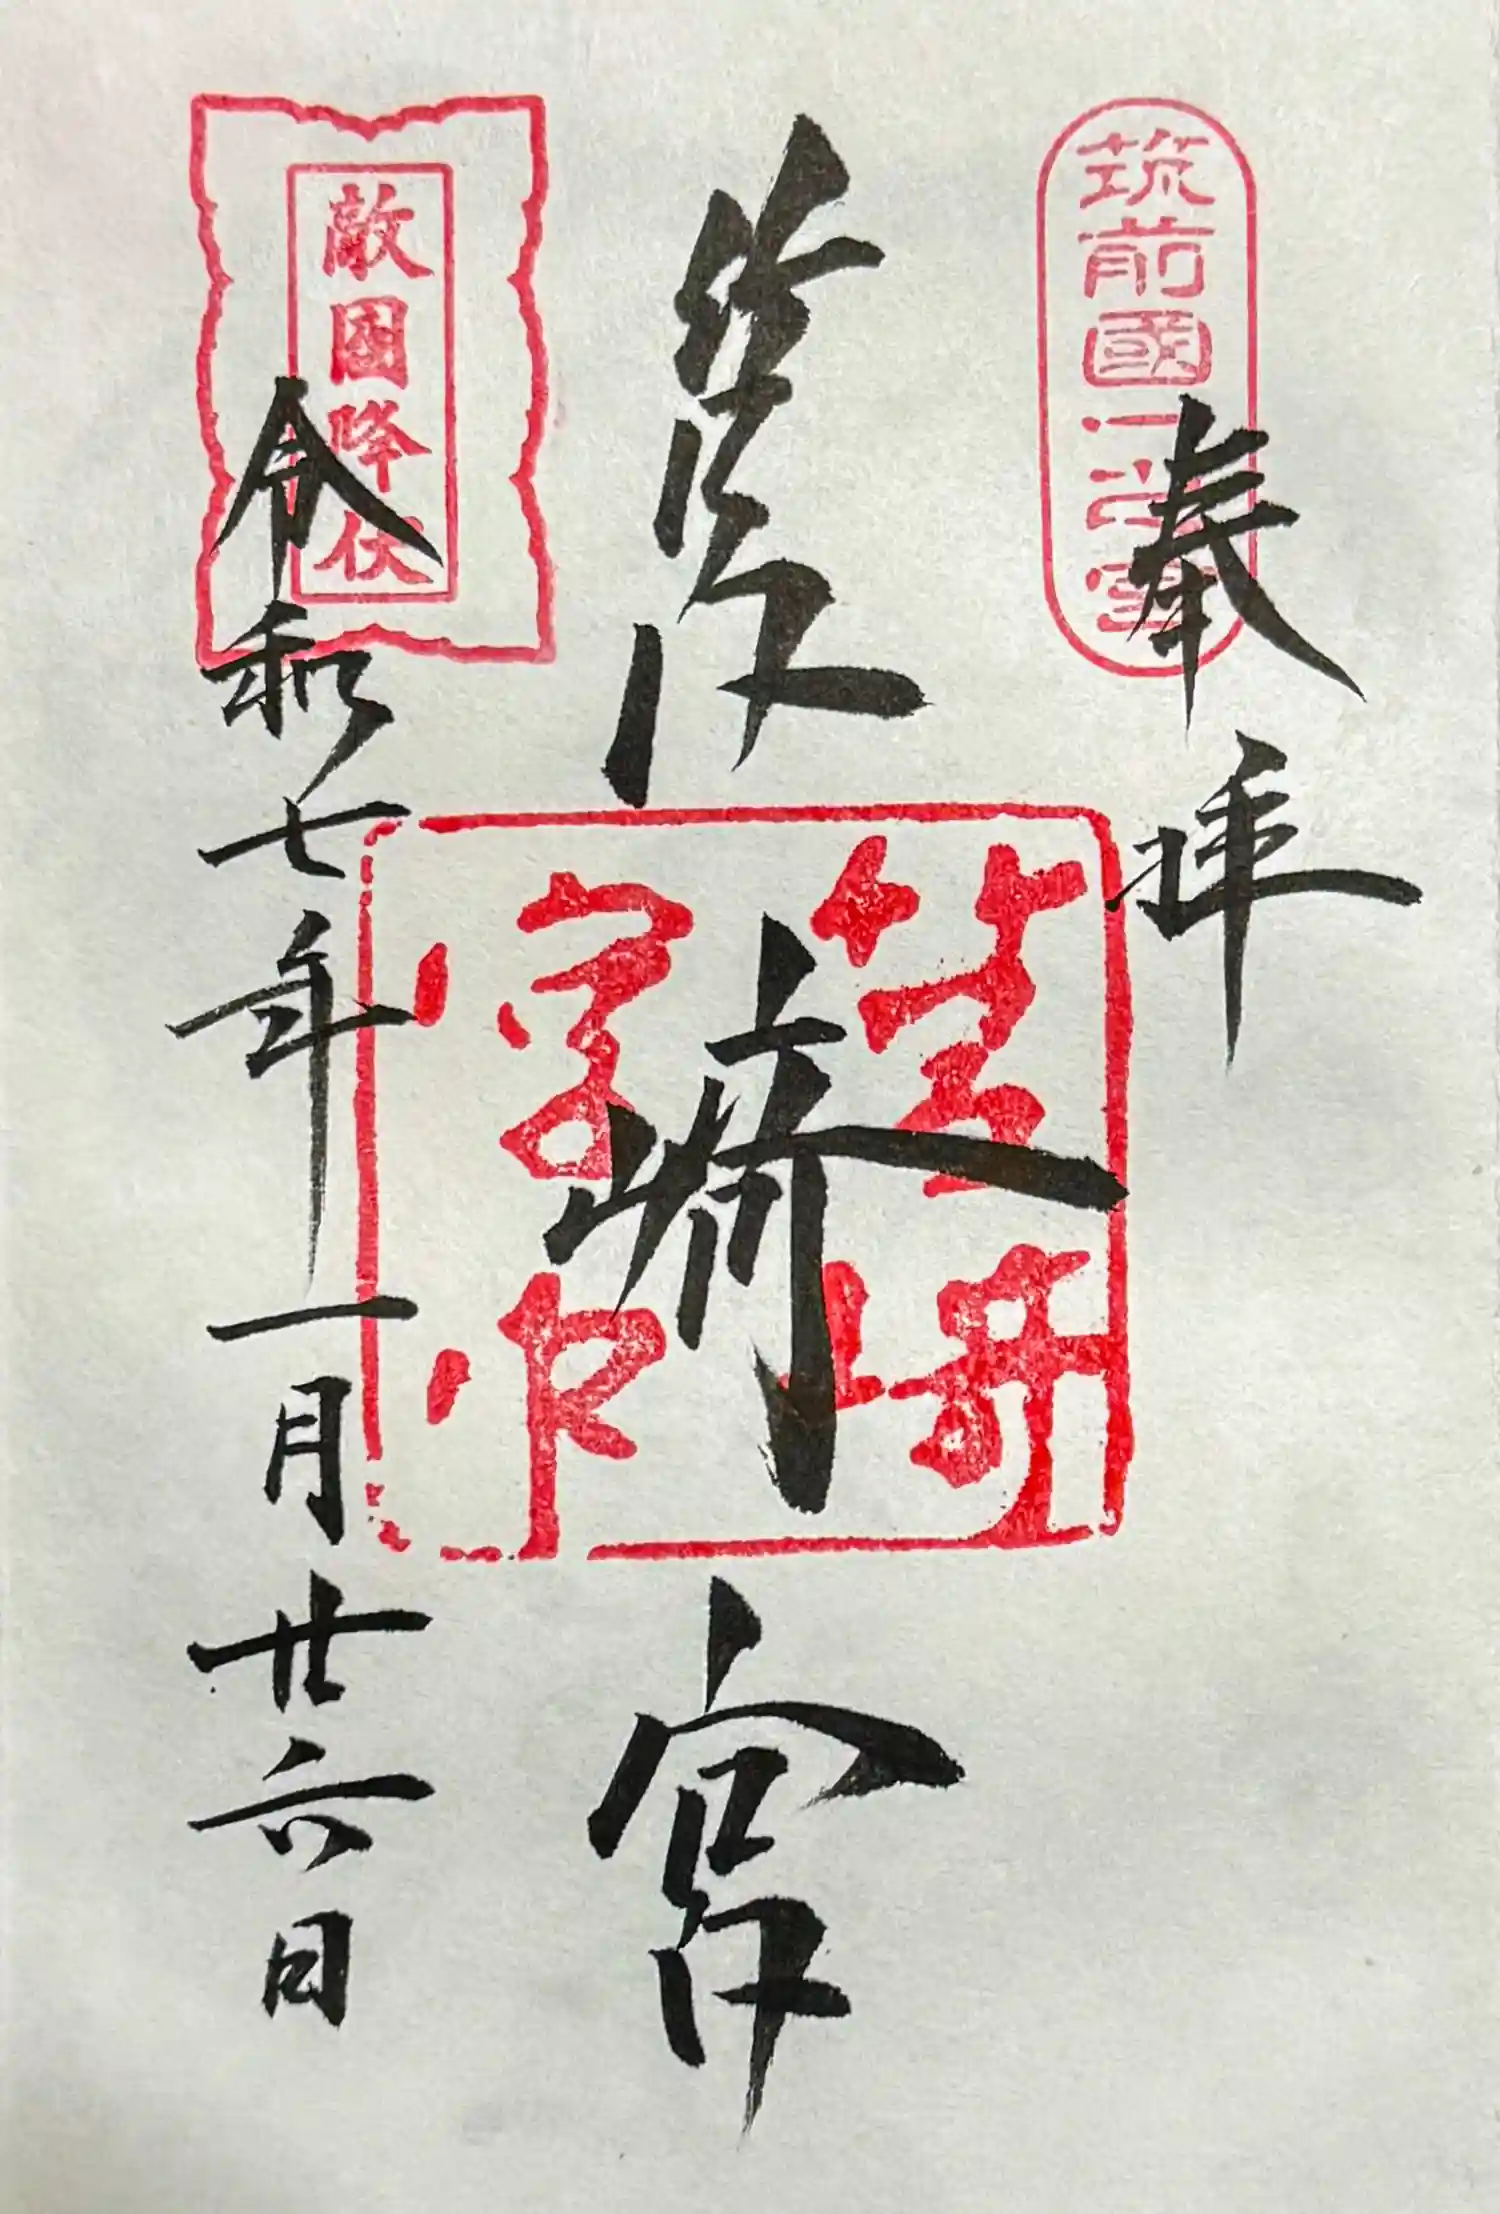 筑前國一之宮
奉拝
筥崎宮
筥崎宮印
敵國降伏
令和七年一月廿六日